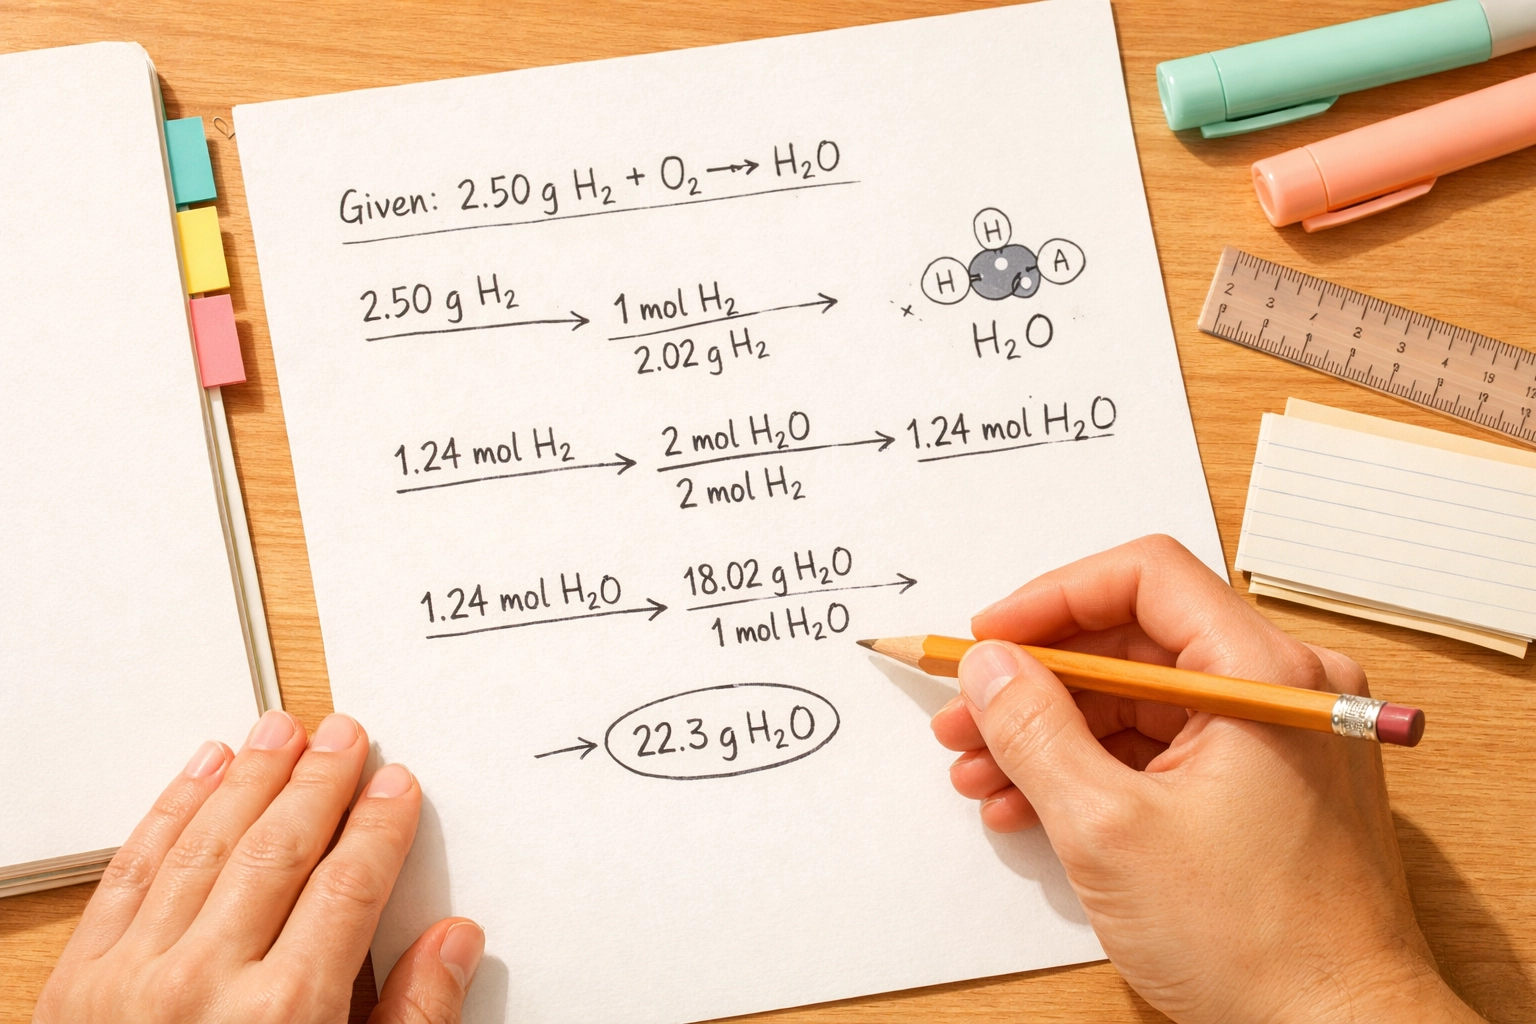 Given: 2.50 g H₂ + O₂ → H₂O
2.50 g H₂ → 1 mol H₂ →
2.02 g H₂
H
H
A
H₂O
1.24 mol H₂ → 2 mol H₂O → 1.24 mol H₂O
2 mol H₂
1.24 mol H₂O → 18.02 g H₂O →
1 mol H₂O
→ 22.3 g H₂O
2 3 2 3 4